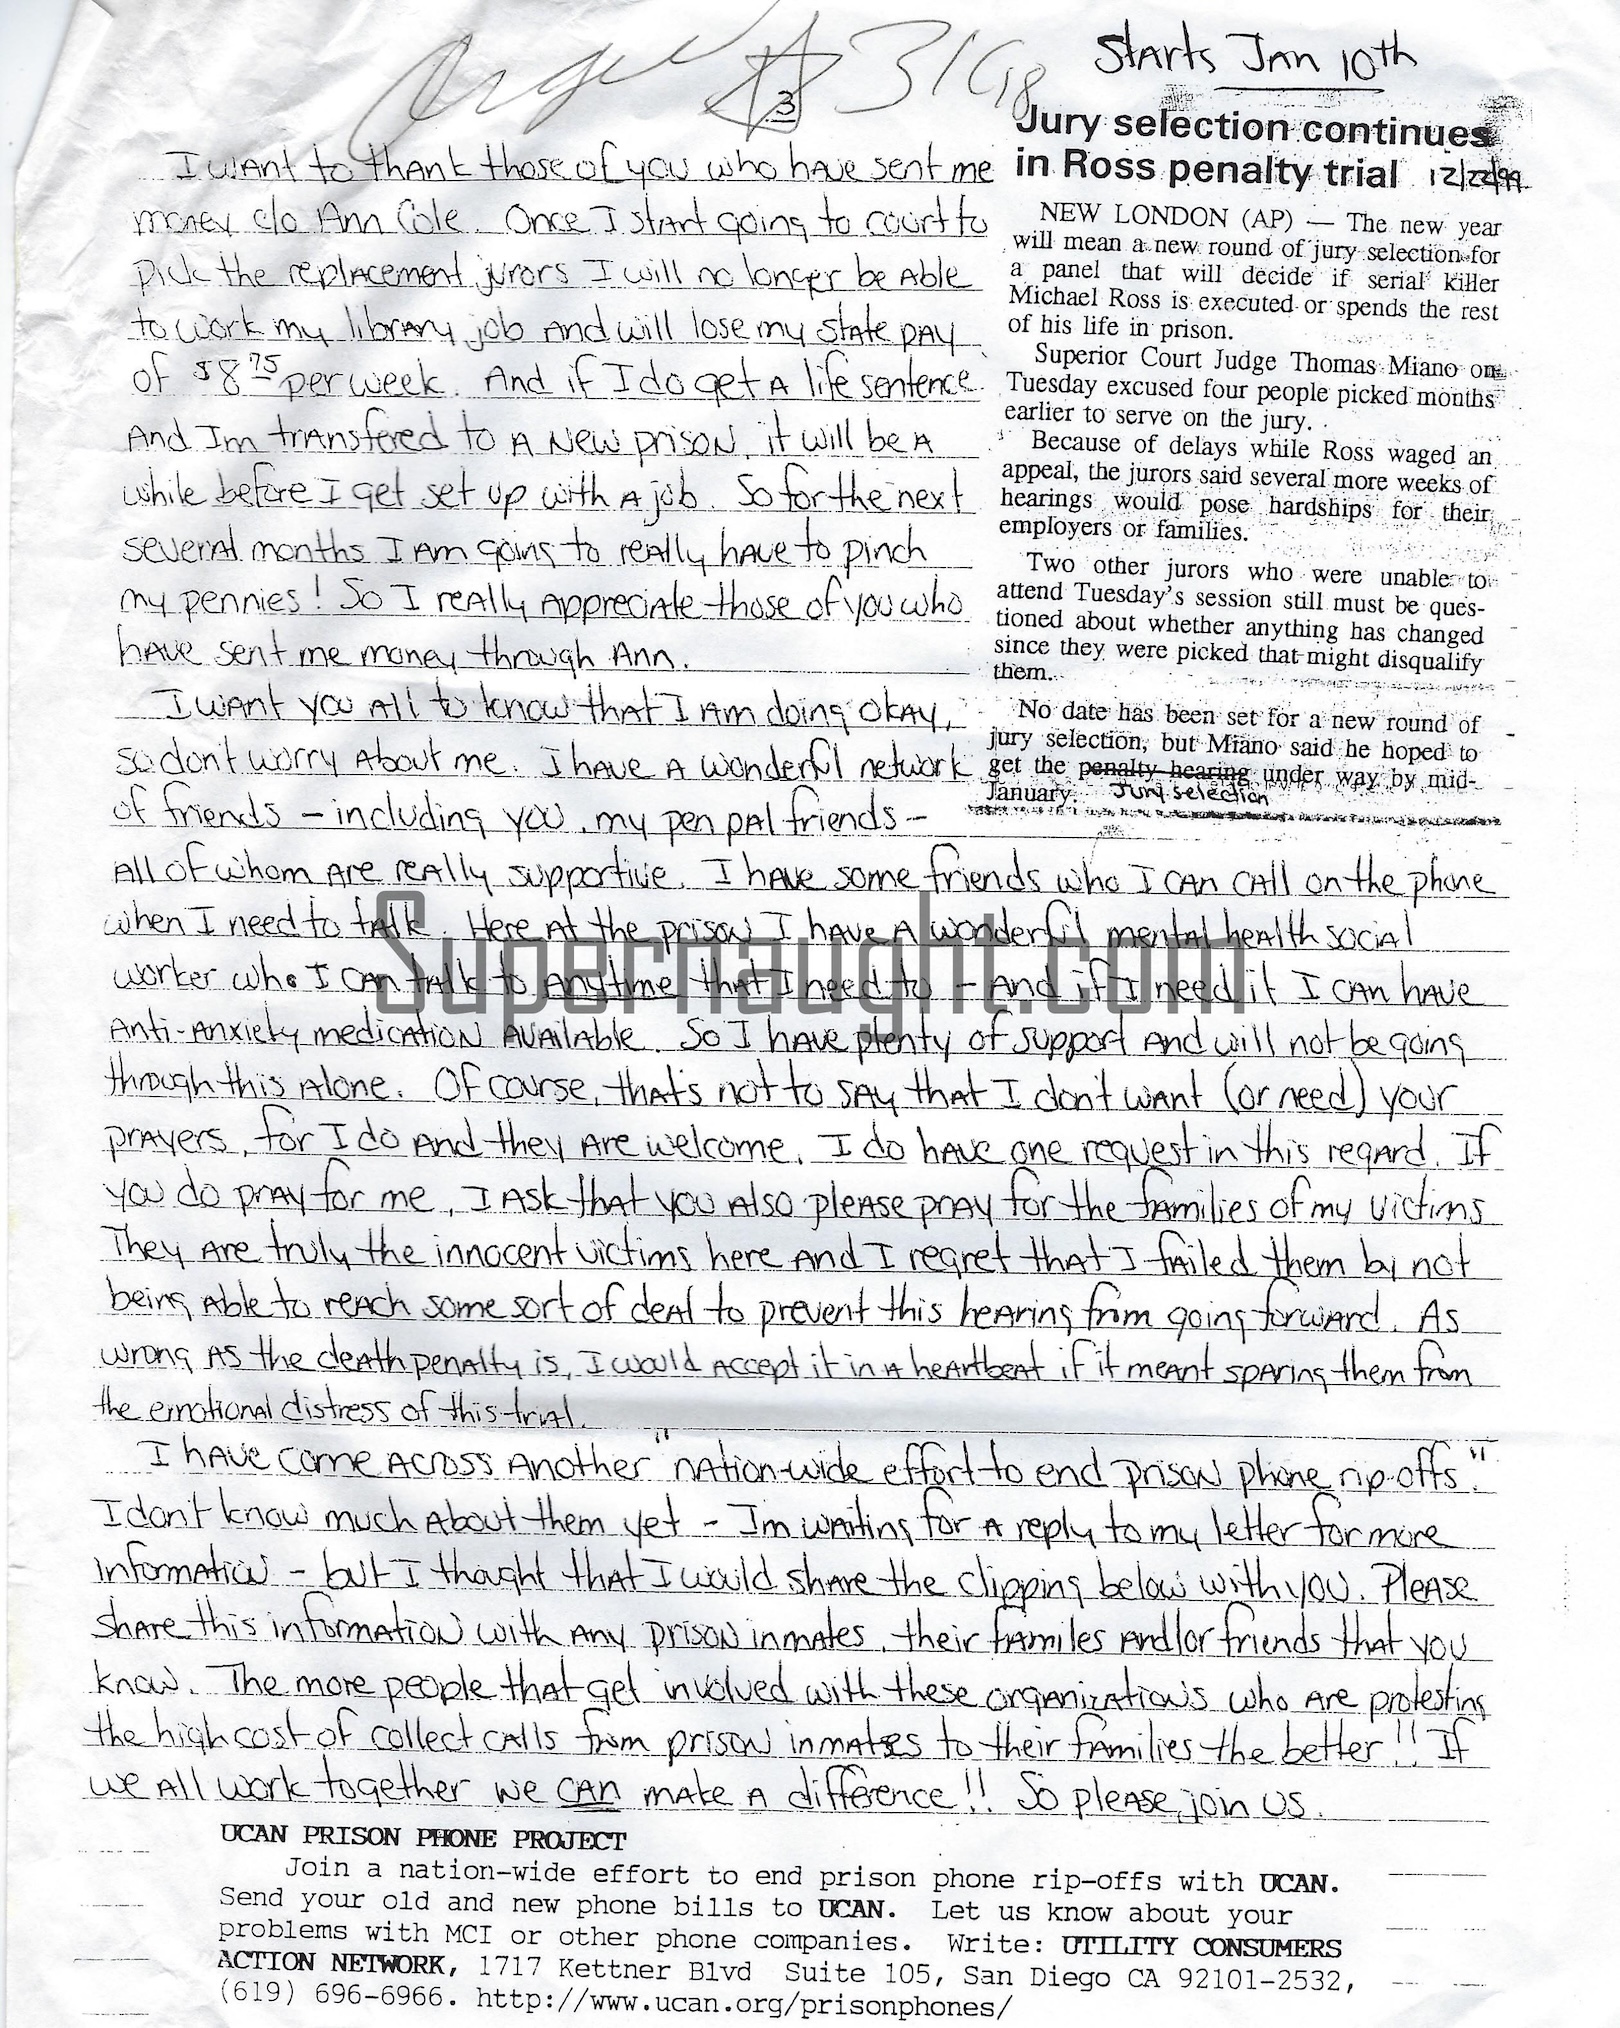 3
Starts Jan 10th
Jury selection continues
in Ross penalty trial 12/22/99
NEW LONDON (AP) — The new year
will mean a new round of jury selection for
a panel that will decide if serial killer
Michael Ross is executed or spends the rest
of his life in prison.
Superior Court Judge Thomas Miano on
Tuesday excused four people picked months
earlier to serve on the jury.
Because of delays while Ross waged an
appeal, the jurors said several more weeks of
hearings would pose hardships for their
employers or families.
Two other jurors who were unable to
attend Tuesday's session still must be ques-
tioned about whether anything has changed
since they were picked that might disqualify
them.
No date has been set for a new round of
jury selection, but Miano said he hoped to
get the penalty hearing under way by mid-
January. Jury selection
I want to thank those of you who have sent me
money c/o Ann Cole. Once I start going to court to
pick the replacement jurors I will no longer be able
to work my library job and will lose my state pay
of $8.75 per week. And if I do get a life sentence
and Im transfered to a new prison, it will be a
while before I get set up with a job. So for the next
several months I am going to really have to pinch
my pennies! So I really appreciate those of you who
have sent me money through Ann.
I want you all to know that I am doing okay,
so don't worry about me. I have a wonderful network
of friends - including you, my pen pal friends -
all of whom are really supportive. I have some friends who I can call on the phone
when I need to talk. Here at the prison I have a wonderful mental health social
worker who I can talk to anytime that I need to - and if I need it I can have
anti-anxiety medication available. So I have plenty of support and will not be going
through this alone. Of course, that's not to say that I don't want (or need) your
prayers, for I do and they are welcome. I do have one request in this regard. If
you do pray for me, I ask that you also please pray for the families of my victims
They are truly the innocent victims here and I regret that I failed them by not
being able to reach some sort of deal to prevent this hearing from going forward. As
wrong as the death penalty is, I would accept it in a heartbeat if it meant sparing them from
the emotional distress of this trial.
I have come across another "nation-wide effort to end prison phone rip-offs."
I don't know much about them yet - Im waiting for a reply to my letter for more
information - but I thought that I would share the clipping below with you. Please
share this information with any prison inmates, their familes and/or friends that you
know. The more people that get involved with these organizations who are protesting
the high cost of collect calls from prison inmates to their families the better!! If
we all work together we can make a difference!! So please join us.
UCAN PRISON PHONE PROJECT
Join a nation-wide effort to end prison phone rip-offs with UCAN.
Send your old and new phone bills to UCAN. Let us know about your
problems with MCI or other phone companies. Write: UTILITY CONSUMERS
ACTION NETWORK, 1717 Kettner Blvd Suite 105, San Diego CA 92101-2532,
(619) 696-6966. http://www.ucan.org/prisonphones/
Supernaught.com